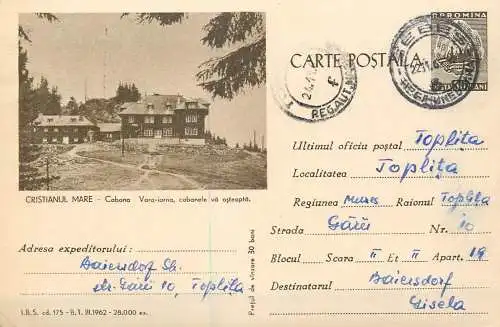 CRISTIANUL MARE - Cabana Vara-iarna, cabanele vă așteaptă.
Adresa expeditorului:
Baiersdorf
str. Gării 10, Toplița
I.B.S. cd. 175 - B.1. III.1962 - 28.000 ex.
Prețul de vînzare 30 bani
CARTE POȘTALA
R.P.ROMINA
REGAUT
Ultimul oficiu poștal Toplița
Localitatea Toplița
Regiunea Mureș Raionul Toplița
Strada Gării Nr. 10
Blocul Scara II Et II Apart. 19
Destinatarul Baiersdorf
Gisela